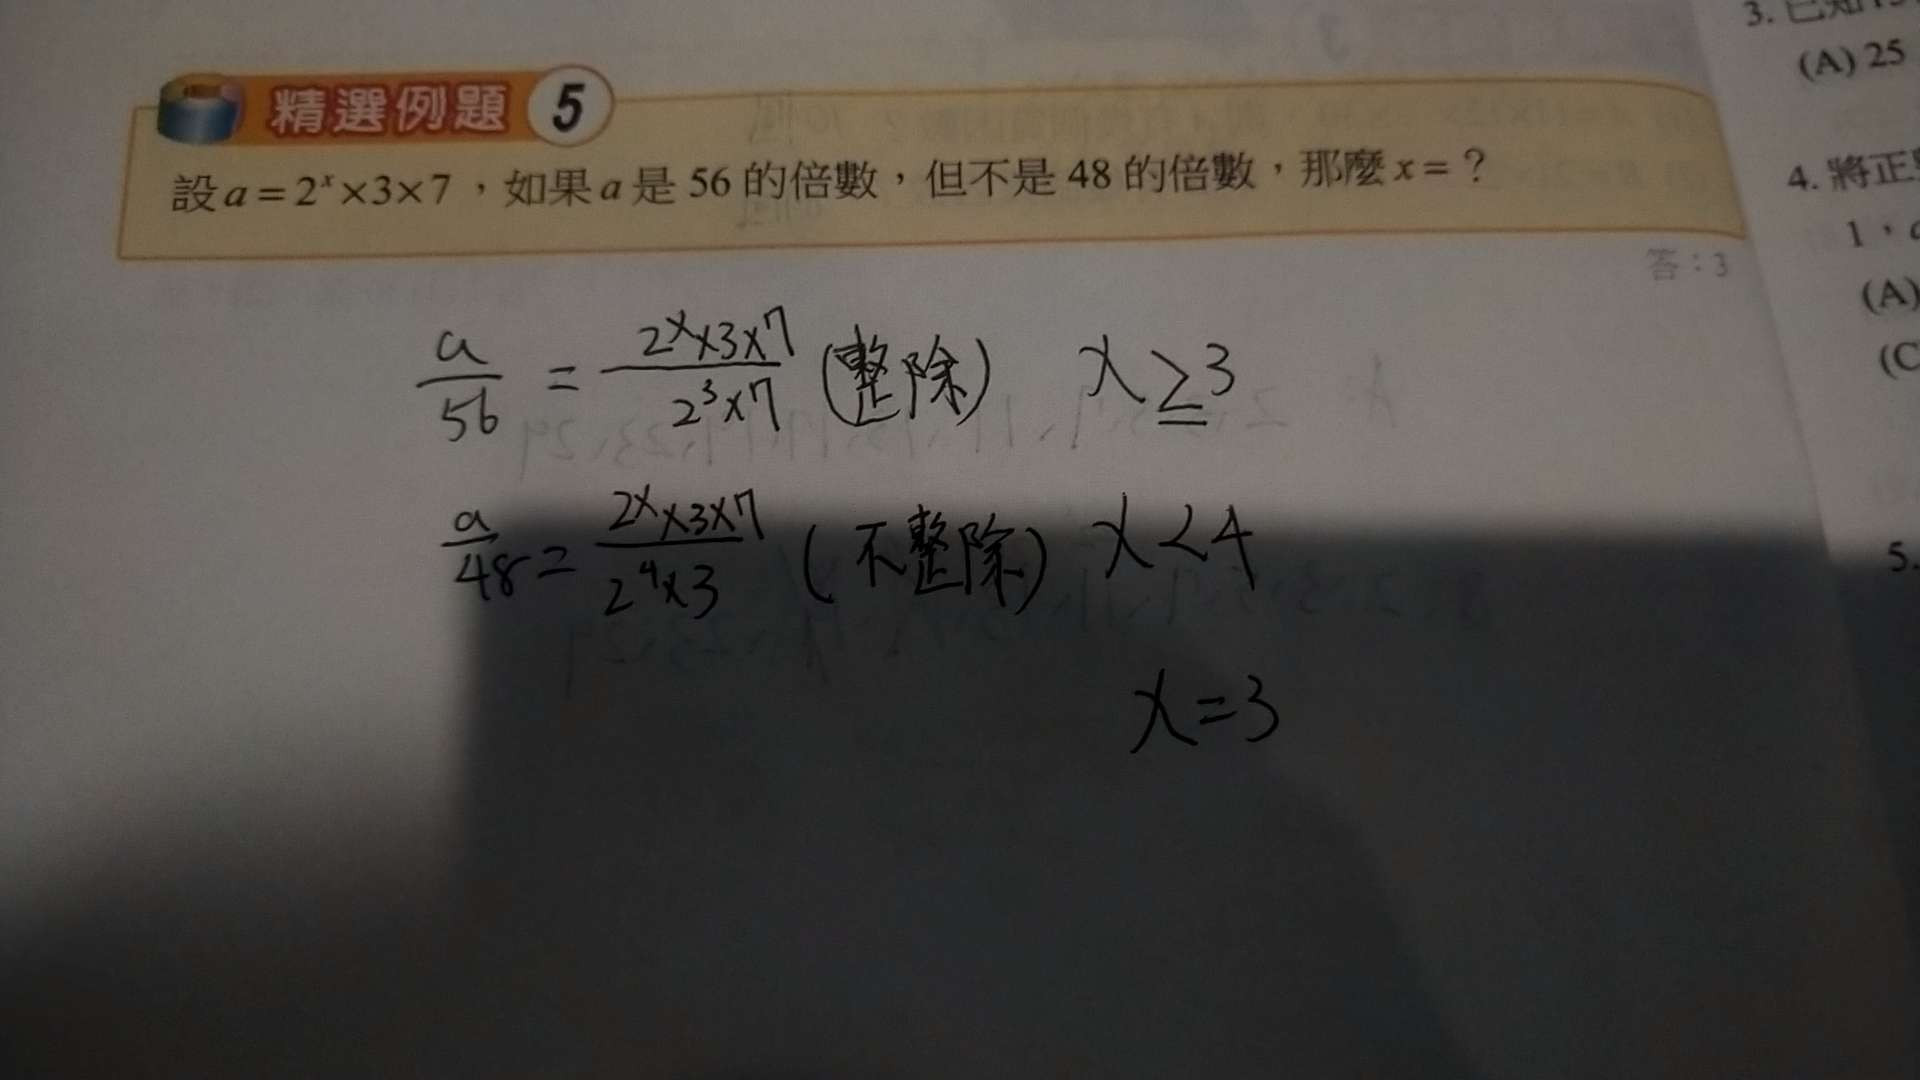 精選例題 5
設 a = 2ˣ × 3 × 7，如果 a 是 56 的倍數，但不是 48 的倍數，那麼 x = ？
答：3
a/56 = 2ˣ×3×7 / 2³×7 (整除) x ≥ 3
a/48 = 2ˣ×3×7 / 2⁴×3 (不整除) x < 4
x = 3
3. 已知
(A) 25
4. 將正
1，
(A)
(C
5.